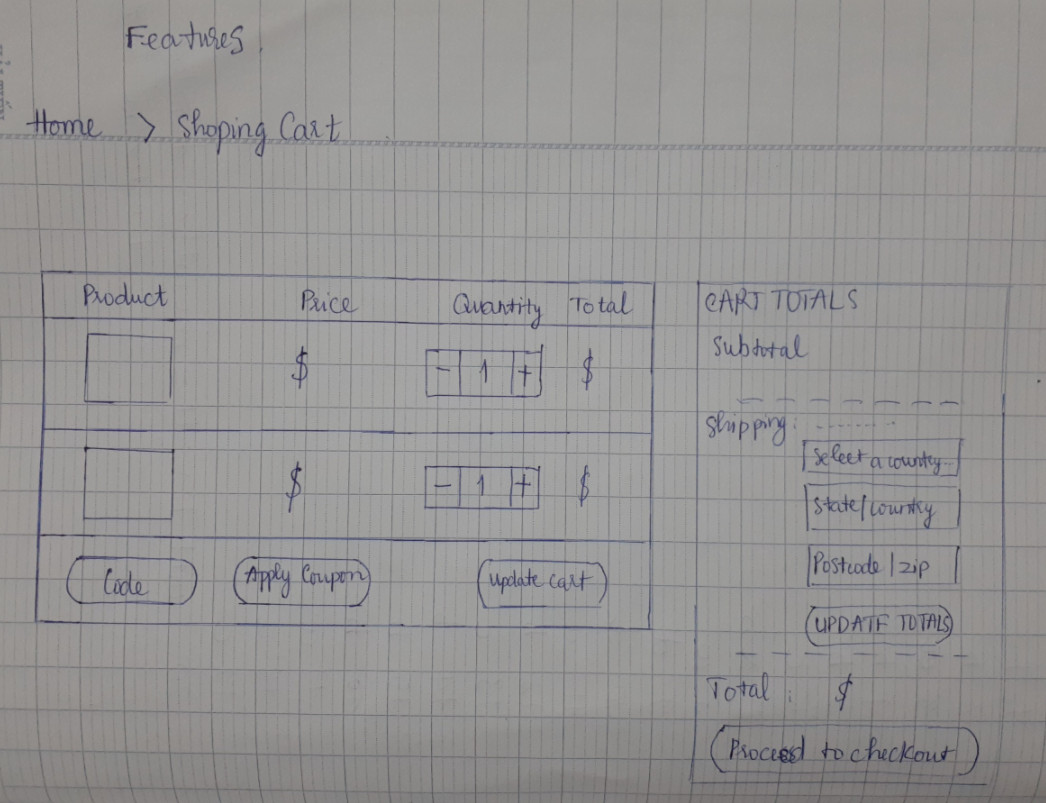 Features.
Home > Shoping Cart
Product Price Quantity Total
$ - 1 + $
$ - 1 + $
Code Apply Coupon Update cart
CART TOTALS
Subtotal
Shipping:
Select a country...
State/country
Postcode/zip
UPDATE TOTALS
Total: $
Proceed to checkout